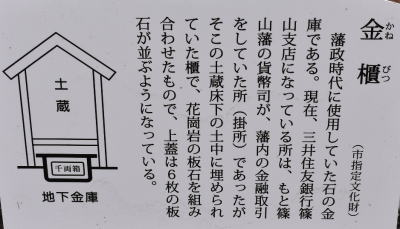 金櫃
かね びつ
（市指定文化財）
藩政時代に使用していた石の金
庫である。現在、三井住友銀行篠
山支店になっている所は、もと篠
山藩の貨幣司が、藩内の金融取引
をしていた所（掛所）であったが
そこの土蔵床下の土中に埋められ
ていた櫃で、花崗岩の板石を組み
合わせたもので、上蓋は６枚の板
石が並ぶようになっている。
土蔵
千両箱
地下金庫